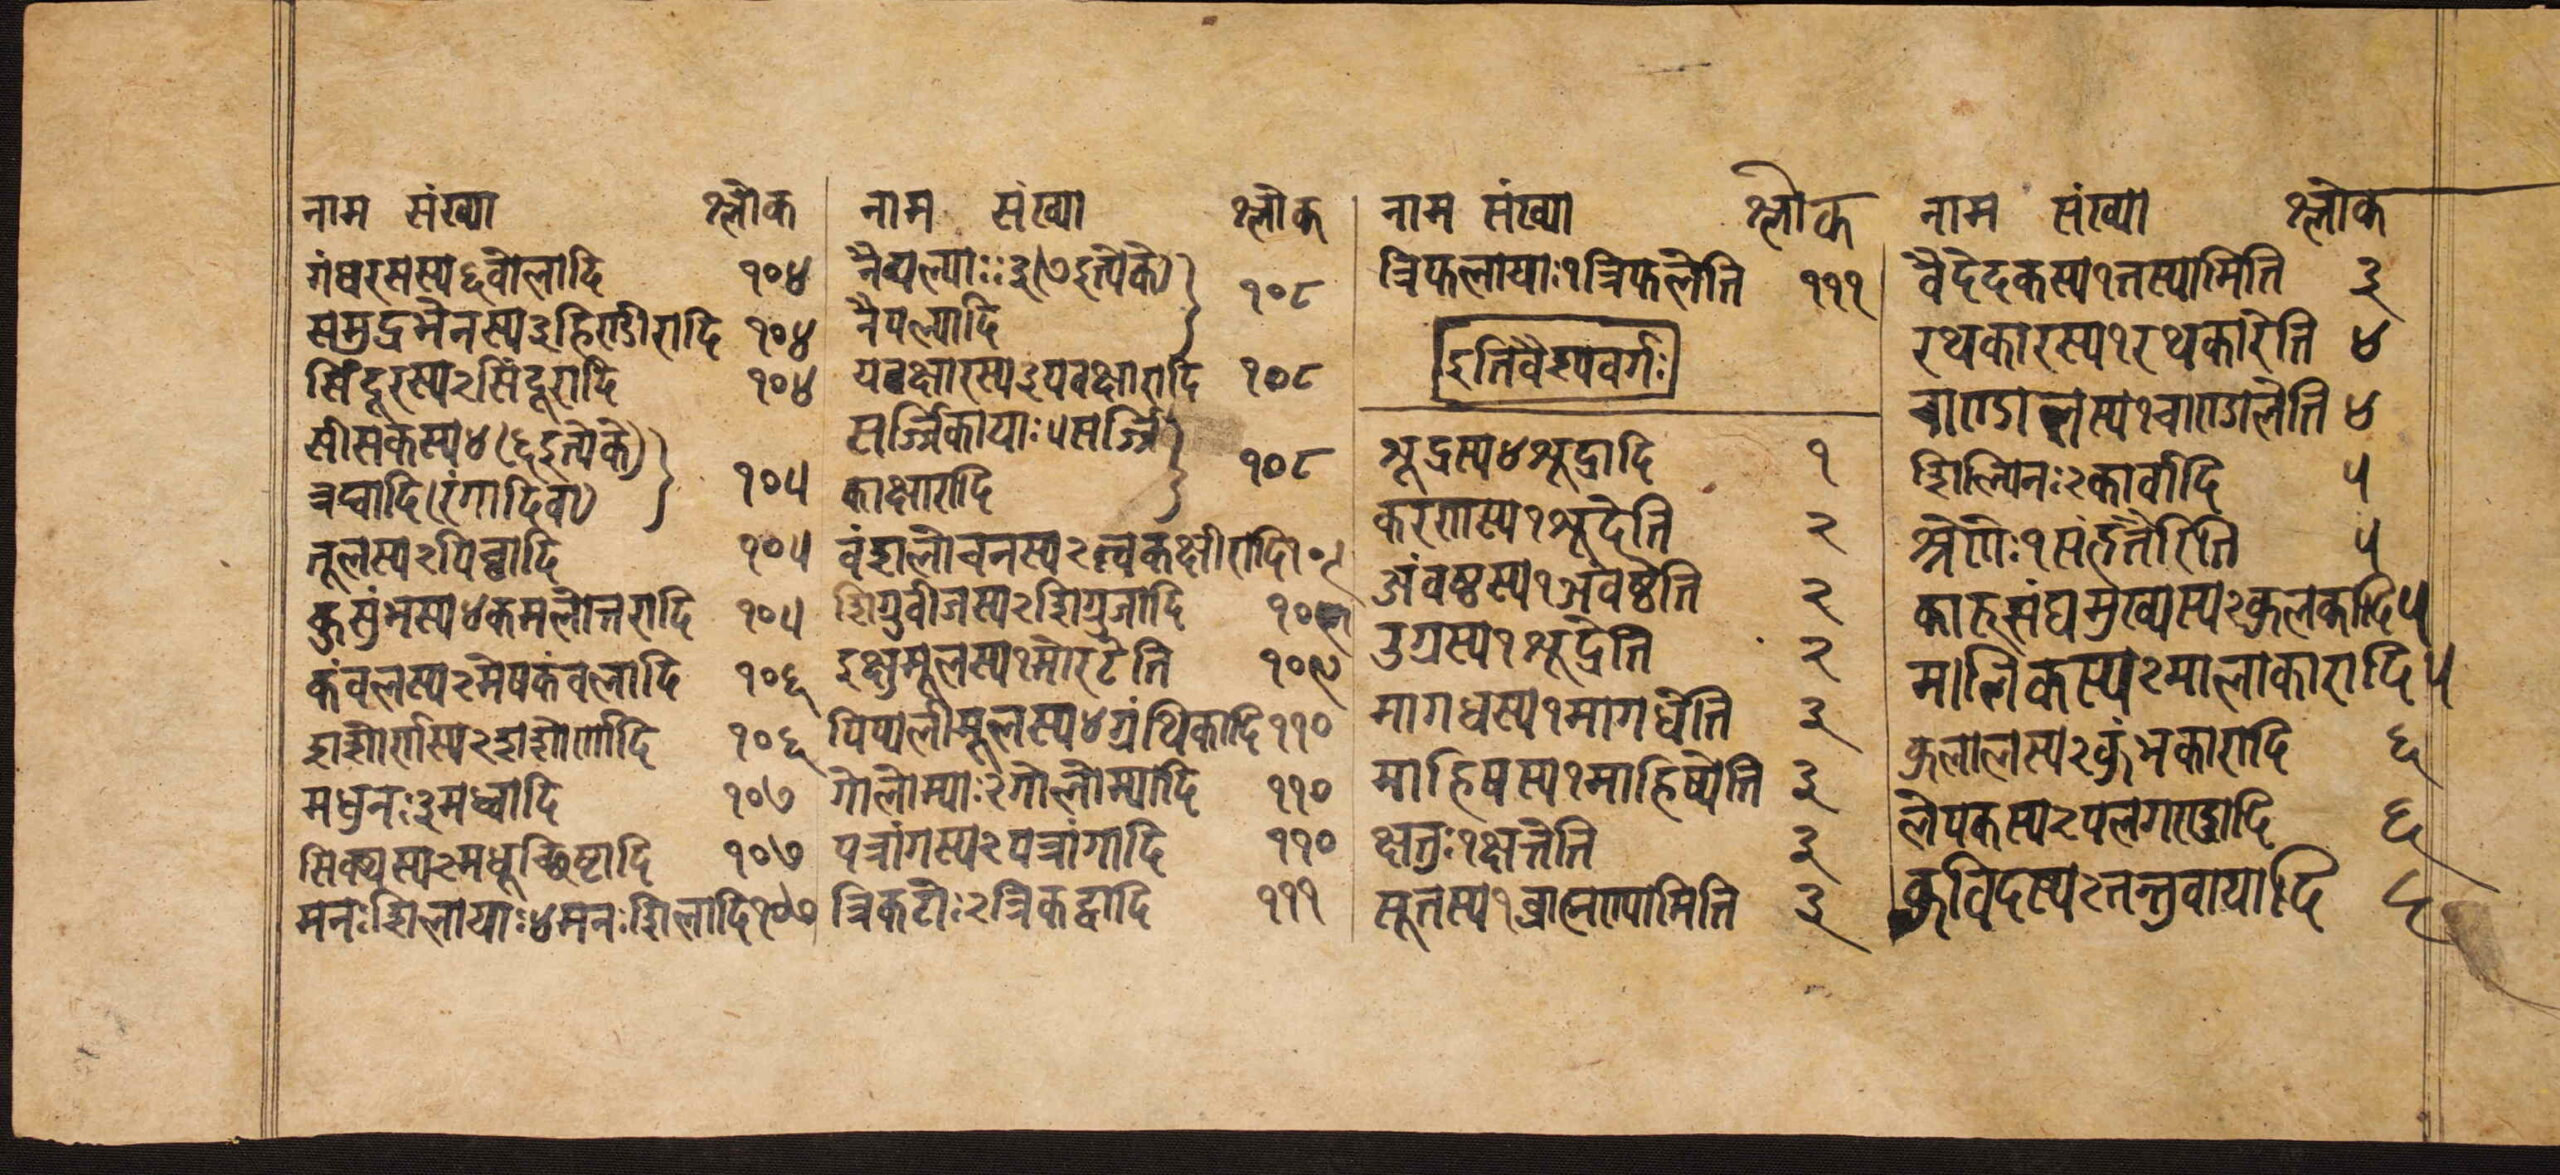 नाम संख्या श्लोक
गंधरसस्य६वोलादि १०४
समुद्रफेनस्य३हिण्डीरादि १०४
सिंदूरस्य२सिंदूरादि १०४
सीसकस्य४(६इत्येके)
त्रप्वादि(रंगादिवा) १०५
तूलस्य२पिच्वादि १०५
कुसुंभस्य४कमलोत्तरादि १०५
कंवलस्य२मेषकंवलादि १०६
शशोर्णस्य२शशोर्णादि १०६
मधुनः३मध्वादि १०७
सिक्थस्य२मधूच्छिष्टादि १०७
मनःशिलायाः४मनःशिलादि१०७
नाम संख्या श्लोक
नैपाल्याः३(७इत्येके)
नैपाल्यादि १०८
यवक्षारस्य३यवक्षारादि १०८
सर्ज्जिकायाः५सर्ज्जि
काक्षारादि १०८
वंशलोचनस्य२त्वकक्षीरादि१०९
शिग्रुवीजस्य२शिग्रुजादि १०९
इक्षुमूलस्य१मोरटेति १०९
पिप्पलीमूलस्य४ग्रंथिकादि११०
गोलोम्याः२गोलोम्यादि ११०
पत्रांगस्य२पत्रांगादि ११०
त्रिकटोः२त्रिकट्वादि १११
नाम संख्या श्लोक
त्रिफलायाः१त्रिफलेति १११
इतिवैश्यवर्गः
शूद्रस्य४शूद्रादि १
करणस्य१शूद्रेति २
अंवष्ठस्य१अंवष्ठेति २
उग्रस्य१शूद्रेति २
मागधस्य१मागधेति ३
माहिषस्य१माहिष्येति ३
क्षत्तुः१क्षत्तेति ३
सूतस्य१ब्राह्मण्यामिति ३
नाम संख्या श्लोक
वैदेहकस्य१तस्यामिति ३
रथकारस्य१रथकारेति ४
चाण्डालस्य१चाण्डालेति ४
शिल्पिनः२कार्वादि ५
श्रेणेः१संहतैरिति ५
कारुसंघमुख्यस्य२कुलकादि५
मालिकस्य२मालाकारादि५
कुलालस्य२कुंभकारादि ६
लेपकस्य२पलगण्डादि ६
कुविंदस्य२तन्तुवायादि ६